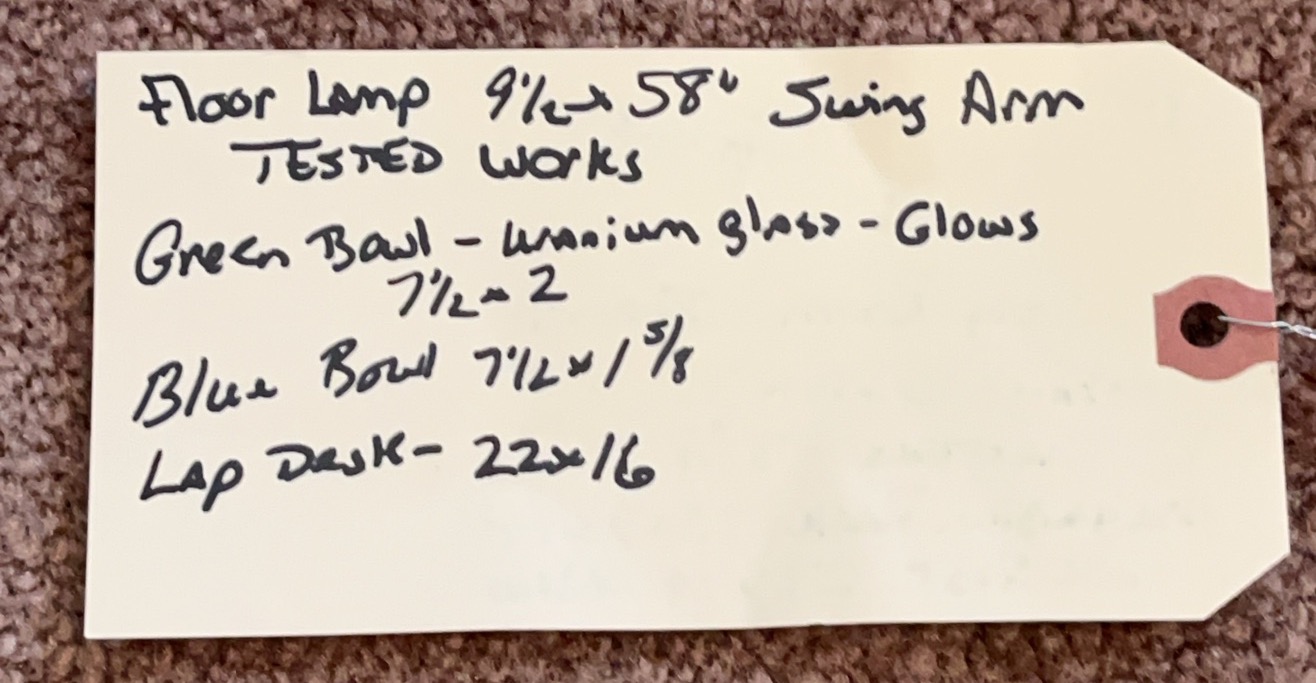 Floor Lamp 9½ x 58" Swing Arm
TESTED Works
Green Bowl - uranium glass - Glows
7½ x 2
Blue Bowl 7½ x 1 5/8
Lap Desk - 22x16